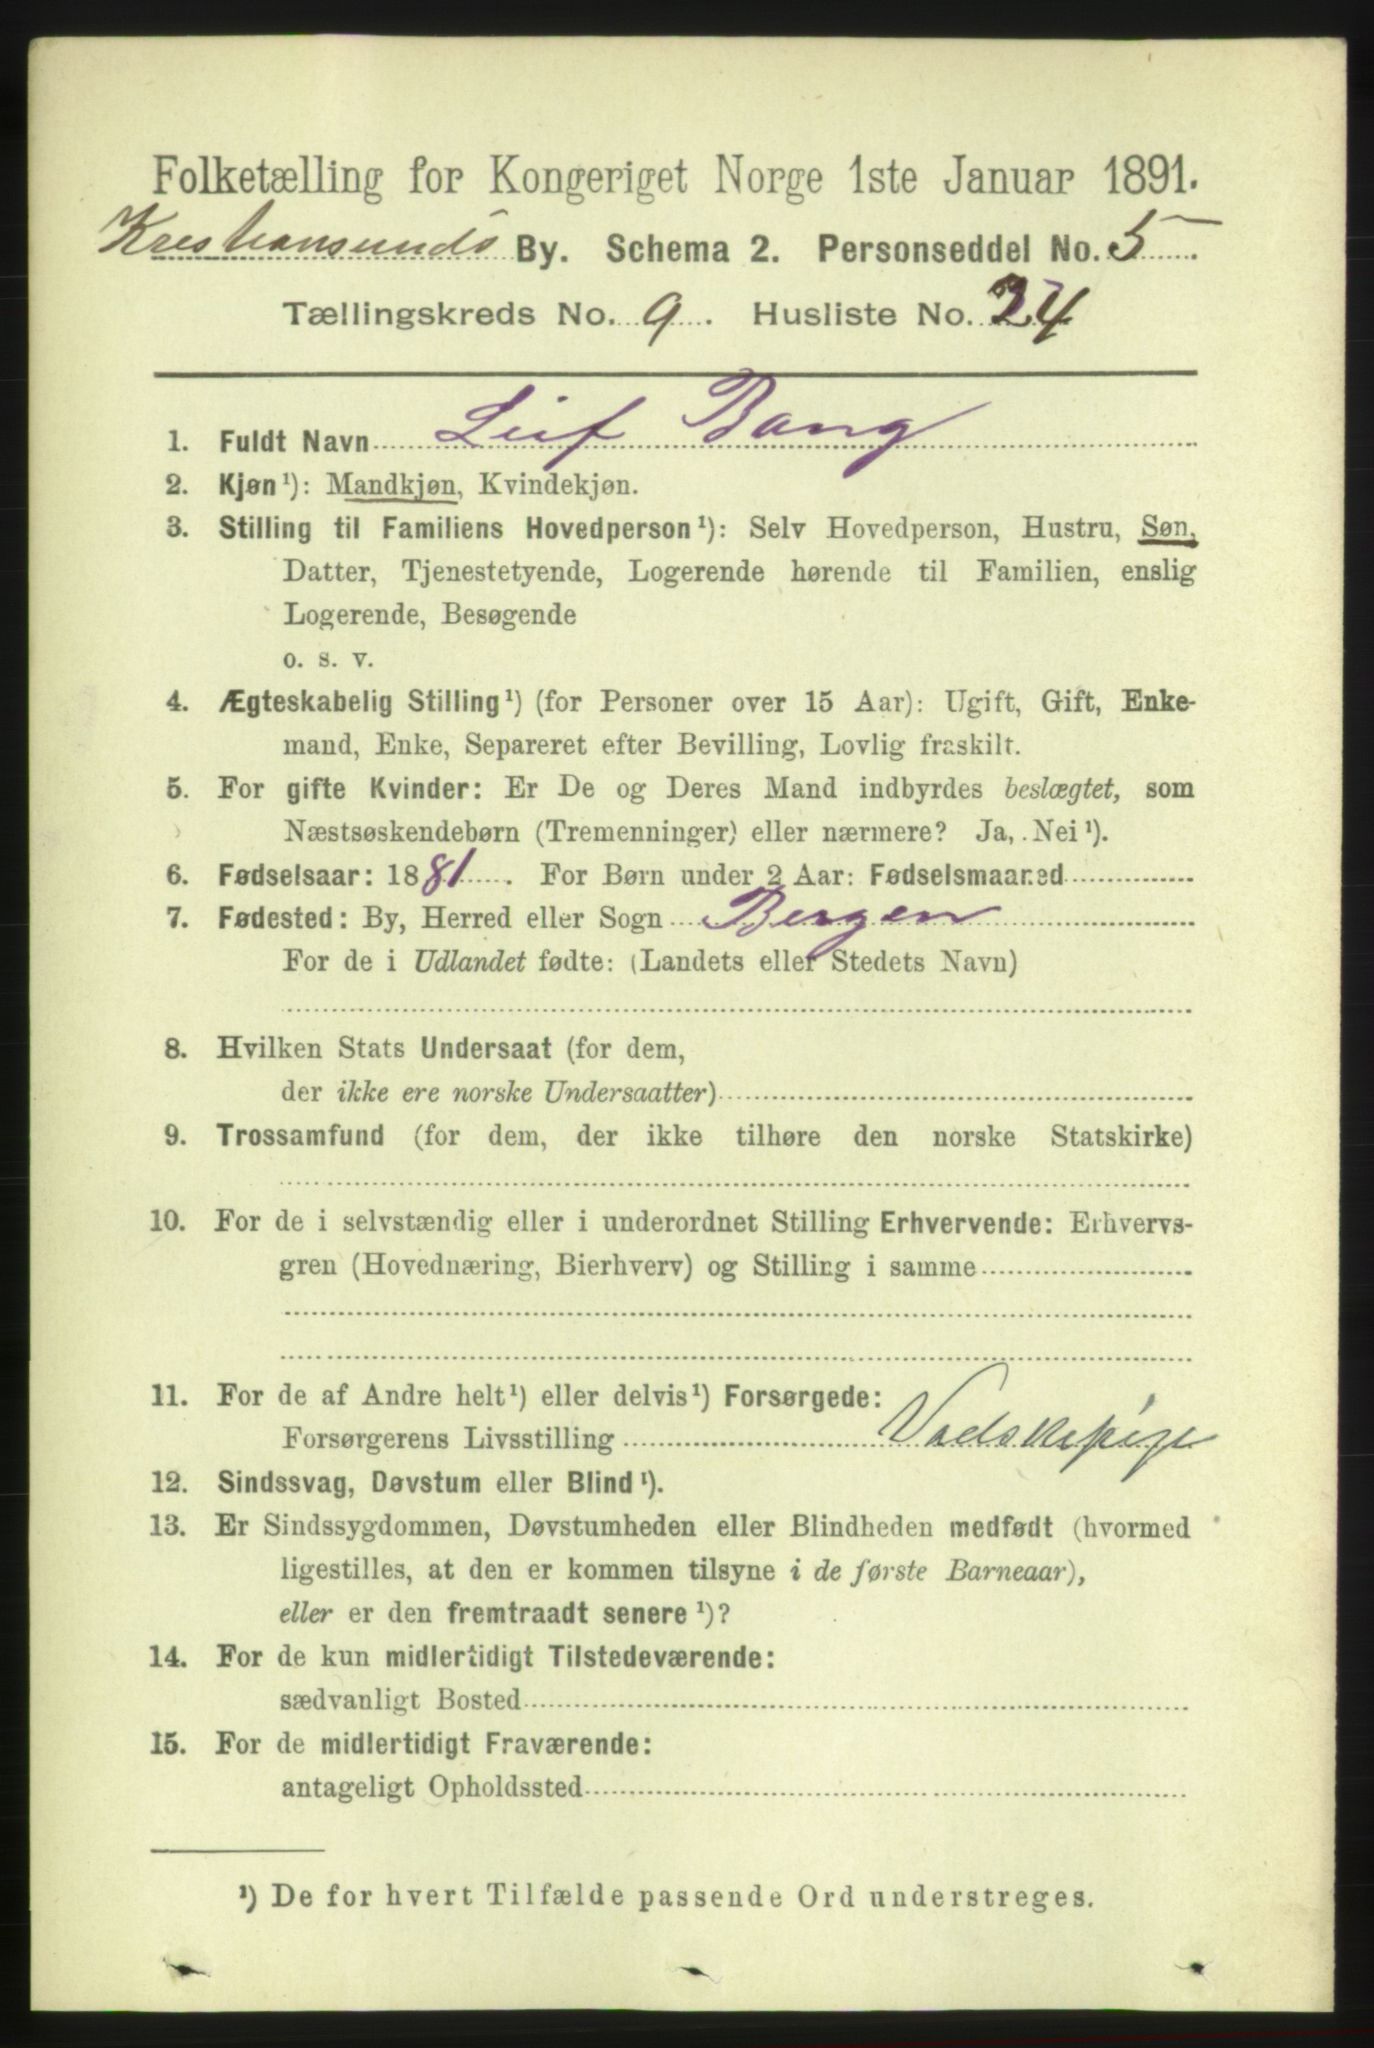 Folketælling for Kongeriget Norge 1ste Januar 1891.
Kristiansunds By. Schema 2. Personseddel No. 5
Tællingskreds No. 9. Husliste No. 24
1. Fuldt Navn Leif Bang
2. Kjøn¹): Mandkjøn, Kvindekjøn.
3. Stilling til Familiens Hovedperson¹): Selv Hovedperson, Hustru, Søn,
Datter, Tjenestetyende, Logerende hørende til Familien, enslig
Logerende, Besøgende
o. s. v.
4. Ægteskabelig Stilling¹) (for Personer over 15 Aar): Ugift, Gift, Enke-
mand, Enke, Separeret efter Bevilling, Lovlig fraskilt.
5. For gifte Kvinder: Er De og Deres Mand indbyrdes beslægtet, som
Næstsøskendebørn (Tremenninger) eller nærmere? Ja, Nei¹).
6. Fødselsaar: 1881. For Børn under 2 Aar: Fødselsmaaned
7. Fødested: By, Herred eller Sogn Bergen
For de i Udlandet fødte: (Landets eller Stedets Navn)
8. Hvilken Stats Undersaat (for dem,
der ikke ere norske Undersaatter)
9. Trossamfund (for dem, der ikke tilhøre den norske Statskirke)
10. For de i selvstændig eller i underordnet Stilling Erhvervende: Erhvervs-
gren (Hovednæring, Bierhverv) og Stilling i samme
11. For de af Andre helt¹) eller delvis¹) Forsørgede:
Forsørgerens Livsstilling
12. Sindssvag, Døvstum eller Blind¹).
13. Er Sindssygdommen, Døvstumheden eller Blindheden medfødt (hvormed
ligestilles, at den er kommen tilsyne i de første Barneaar),
eller er den fremtraadt senere¹)?
14. For de kun midlertidigt Tilstedeværende:
sædvanligt Bosted
15. For de midlertidigt Fraværende:
antageligt Opholdssted
¹) De for hvert Tilfælde passende Ord understreges.